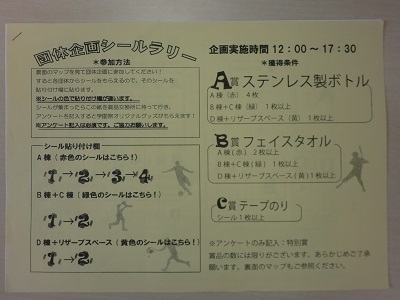 団体企画シールラリー
＊参加方法
裏面のマップを見て団体企画に参加してください！
すると各団体からシールをもらえるので、そのシールを
貼り付け欄に貼ります。
※シールの色で貼り付け欄が違います。
シールが集まったらこの紙を景品交換所に持って行き、
アンケートを記入すると学園祭オリジナルグッズがもらえます！
※アンケート記入は必須です。ご協力お願いします。
シール貼り付け欄
A棟（赤色のシールはこちら！）
1→2→3→4
B棟＋C棟（緑色のシールはこちら！）
1→2
D棟＋リザーブスペース（黄色のシールはこちら！）
1→2
企画実施時間 12：00～17：30
＊獲得条件
A賞 ステンレス製ボトル
A棟（赤） 4枚
B棟＋C棟（緑） 1枚以上
D棟＋リザーブスペース（黄） 1枚以上
B賞 フェイスタオル
A棟（赤）2枚以上
B棟＋C棟（緑） 1枚以上
D棟＋リザーブスペース（黄）1枚以上
C賞 テープのり
シール1枚以上
※アンケートのみ記入：特別賞
賞品の数には限りがございます。あらかじめご了承
願います。裏面のマップもご参照ください。